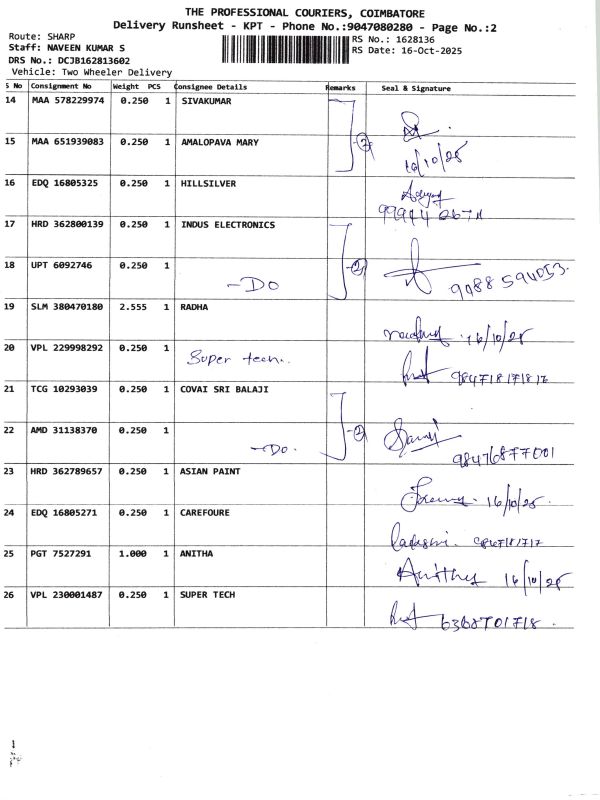 THE PROFESSIONAL COURIERS, COIMBATORE
Delivery Runsheet - KPT - Phone No.:9047080280 - Page No.:2
Route: SHARP
RS No.: 1628136
Staff: NAVEEN KUMAR S
RS Date: 16-Oct-2025
DRS No.: DCJB162813602
Vehicle: Two Wheeler Delivery
S No Consignment No Weight PCS Consignee Details Remarks Seal & Signature
14 MAA 578229974 0.250 1 SIVAKUMAR
15 MAA 651939083 0.250 1 AMALOPAVA MARY 2
16/10/25
16 EDQ 16805325 0.250 1 HILLSILVER
17 HRD 362800139 0.250 1 INDUS ELECTRONICS
18 UPT 6092746 0.250 1 -DO 2 9088594053.
19 SLM 380470180 2.555 1 RADHA
16/10/25
20 VPL 229998292 0.250 1 Super tech..
21 TCG 10293039 0.250 1 COVAI SRI BALAJI
22 AMD 31138370 0.250 1 -Do. 2
98476877001
23 HRD 362789657 0.250 1 ASIAN PAINT
16/10/25.
24 EDQ 16805271 0.250 1 CAREFOURE
25 PGT 7527291 1.000 1 ANITHA
Anitha 16/10/25
26 VPL 230001487 0.250 1 SUPER TECH
6368701718.